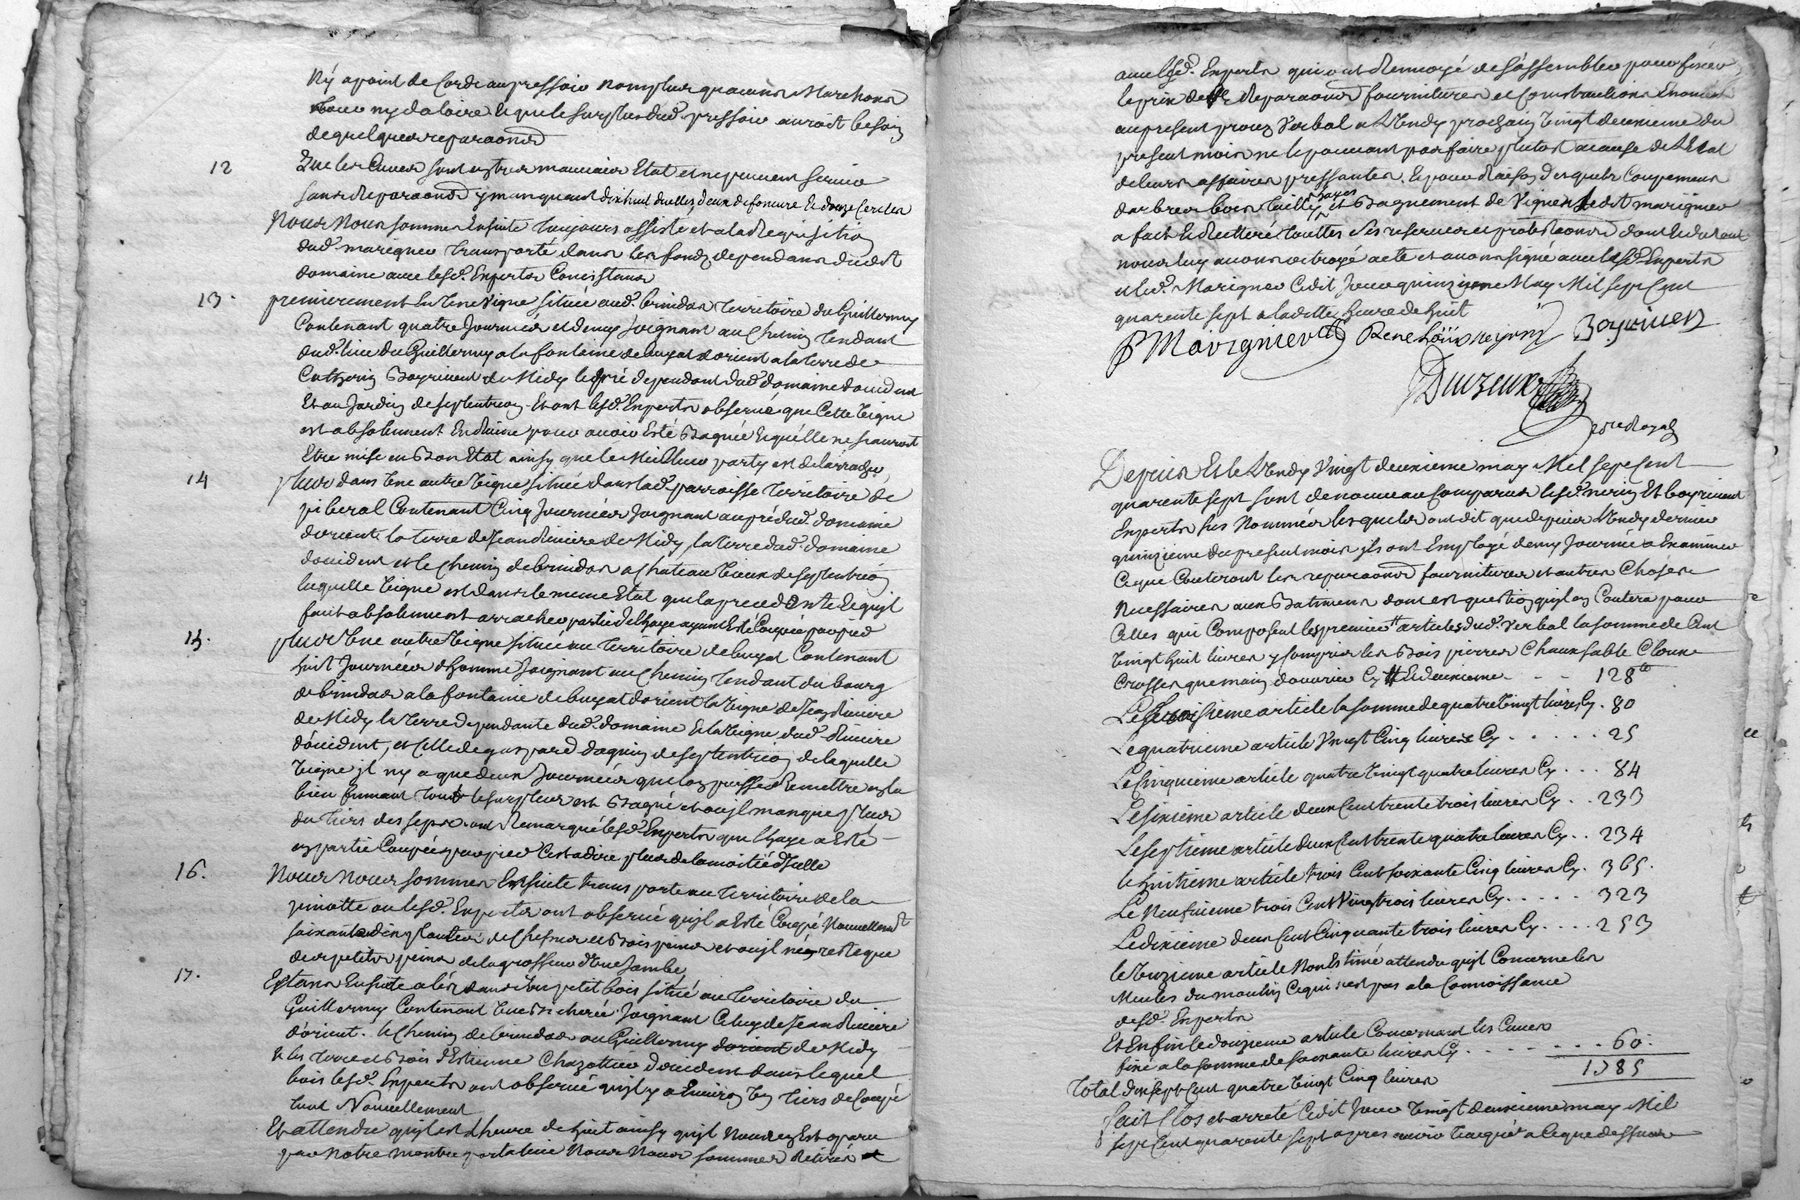 Ny a point de corde au pressoir non plus qu aucuns Marchons
pour ny da loire et que le surplus dud. pressoir auroit besoin
de quelques reparaons
12 Que les Cuves sont en tres mauvais Etat et ne peuvent servir
sans Reparaons y manquant dixhuit douelles, deux de fonceure et douze Cercles
Nous Nous sommes Ensuite toujours assisté et a la Requisition
dud. marignier transporté dans les fonds dependans dudit
domaine avec lesd. Experts Consistans
13. premierement En Une Vigne située aud. brindas territoire du Guillermy
Contenant quatre Journées et demy Joignant au Chemin tendant
dud. lieu du Guillermy a la fontaine de buyat d orient a la terre de
Catherin Boyrivent de Midy le pré dependant dud. domaine d occident
Et au Jardin de septentrion Et ont lesd. Experts observé que Cette Vigne
est absolument En Ruine pour avoir Esté Bagnée Et quelle ne scauroit
Etre mise en Bon Etat ainsy que le Meilleur party est de l arracher
14 plus dans Une autre Vigne située dans lad. parroisse territoire de
piberal Contenant Cinq Journées Joignant au pré dud. domaine
d orient la terre de Jean Riviere de Midy la terre dud. domaine
d occident et le Chemin de brindas a Chateau Vieux de septentrion
laquelle Vigne est dans le meme Etat que la precedente Et quil
faut absolument arracher partie de lhaye ayant Esté Coupée par pied
15. plus Une autre Vigne située au territoire de buyat Contenant
huit Journées d homme Joignant au Chemin tendant du bourg
de brindas a la fontaine de buyat d orient la Vigne de Jean Riviere
de Midy la terre dependante dud. domaine Et la Vigne dud. Riviere
d occident, et Celle de gaspard daquin de septentrion de laquelle
Vigne il ny a que deux Journées que lon puisse Remettre en la
bien fumant tout le surplus est Bagné et ou il manque plus
du tiers des seps. ont Remarqué lesd. Experts que lhaye a Esté
en partie Coupée par pied Cest a dire plus de la moitié d Icelle
16. Nous Nous sommes Ensuite transporté au territoire de la
pinatte ou lesd. Experts ont observé quil a Esté Coupé Nouvellement
soixante dix plantes de Chesnes et Bois pins et ou il ne reste que
des petits pins de la grosseur d Une Jambe
17. Estans Ensuite allés dans Un petit bois situé au territoire du
Guillermy Contenant Une Bicherée Joignant Celuy de Jean Riviere
d orient. le Chemin de brindas au Guillermy d orient de Midy
& les terre et Bois d Estienne Chazottier d occident dans lequel
bois lesd. Experts ont observé quil y a Environ Un tiers de Coupé
tout Nouvellement
Et attendu quil est l heure de huit ainsy quil Nous est aparu
par Notre montre portative Nous Nous sommes Retirés et
avec lesd. Experts qui ont Renvoyé de sassembler pour fixer
le prix desd. Reparaons fournitures et Constructions Enoncés
au present procez Verbal a Lundy prochain Vingt deuxieme du
present mois ne le pouvant pas faire plutost a cause de L Etat
de leurs affaires pressantes. Et pour Raison desquels Coupemens
darbres bois taillis hayes et Bagnement de Vignes Ledit marignier
a fait Et Reitteré touttes ses reserves et protestaons dont Et du tout
nous luy avons octroyé acte et avons signé avec lesd. Experts
et led. Marignier Cedit Jour quinzieme May Mil sept Cent
quarente sept a ladite heure de huit
P Marignier Rene Boyrivent
Duvzeur
Depuis Et le Lundy Vingt deuxieme may Mil sept Cent
quarente sept sont de nouveau Comparus lesd. nerin Et boyrivent
Experts sus Nommés lesquels ont dit que depuis Lundy dernier
quinzieme du present mois ils ont Employé demy Journée a Examiner
Ce que Couteront les reparaons fournitures et autres Choses
Necessaires aux Batimens dont est question quil en Coutera pour
Celles qui Composent les premiers articles dud. Verbal la somme de Cent
Vingt huit livres y Compris les Bois pierres Chaux sable Cloux
Crosses que main d ouvrier Cy Et deuxieme - - 128 lt
Le troisieme article la somme de quatre Vingt livres Cy. 80
Le quatrieme article Vingt Cinq livres Cy . . . . . 25
Le Cinquieme article quatre Vingt quatre livres Cy . . . 84
Le sixieme article deux Cent trente trois livres Cy . . 233
Le septieme article deux Cent trente quatre livres Cy . . 234
le huitieme article trois Cent soixante Cinq livres Cy . 365.
Le Neufvieme trois Cent Vingt trois livres Cy . . . . . 323
Le dixieme deux Cent Cinquante trois livres Cy . . . . 253
le Unzieme article Non Estimé attendu quil Concerne les
Meules du moulin Ce qui nest pas a la Connoissance
desd. Experts
Et Enfin le douzieme article Concernant les Cuves
fixé a la somme de soixante livres Cy . . . . . . . . 60.
Total dix sept Cent quatre Vingt Cinq livres 1785
fait Clos et arreté Cedit Jour Vingt deuxieme may Mil
sept Cent quarente sept apres avoir Vacqué a Ce que dessus